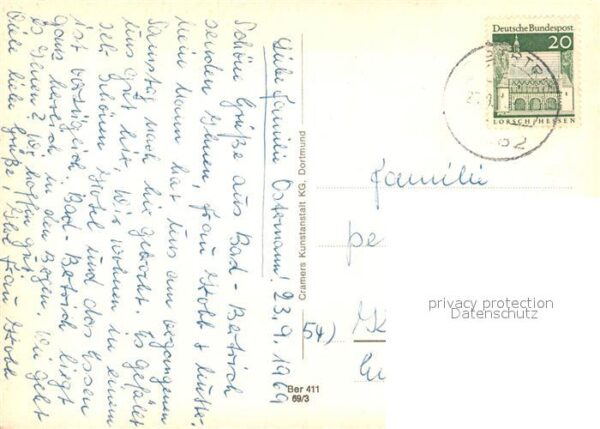 Liebe Familie Ostermann! 23.9.1969
Schöne Grüße aus Bad-Bertrich
senden Ihnen, Frau Stoll & Mutter.
Mein Mann hat uns am vergangenen
Samstag nach hier gebracht. Es gefällt
uns gut hier. Wir wohnen in einem
sehr schönen Hotel und das Essen
ist vorzüglich. Bad-Bertrich liegt
ganz herrlich in den Bergen. Wie geht
es Ihnen? Wir hoffen gut.
Viele liebe Grüße, Ihre Frau Stoll
Cramers Kunstanstalt KG, Dortmund
Ber 411
69/3
Deutsche Bundespost
20
LORSCH/HESSEN
Familie
pe
54)
privacy protection
Datenschutz